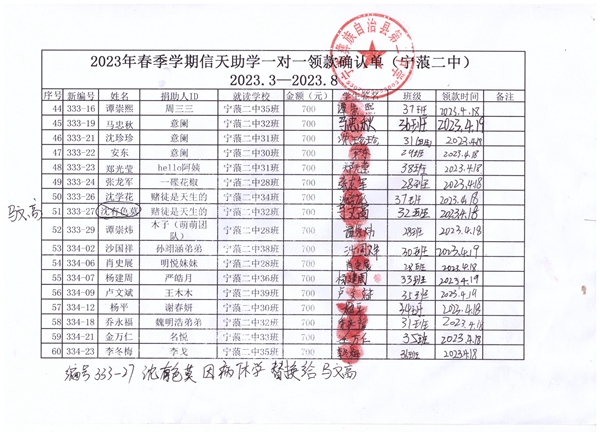 2023年春季学期信天助学一对一领款确认单(宁蒗二中)
2023.3—2023.8
序号 新编号 姓名 捐助人ID 就读学校 金额(元) 班级 领款时间 备注
44 333-16 谭崇熙 周三三 宁蒗二中35班 700 37班 2023.4.18
45 333-19 马忠秋 意阑 宁蒗二中32班 700 马忠秋 36班 2023.4.19
46 333-21 沈珍珍 意阑 宁蒗二中31班 700 2023.4.18
47 333-22 安东 意阑 宁蒗二中30班 700 2023.4.18
48 333-23 郑光莹 hello阿姨 宁蒗二中31班 700 38班 2023.4.18
49 333-24 张龙军 一稞花椒 宁蒗二中28班 700 28班 2023.4.18
50 333-26 沈学花 赌徒是天生的 宁蒗二中34班 700 37班 2023.4.18
马文高 51 333-27 沈有色莫 赌徒是天生的 宁蒗二中32班 700 马文高 32班 2023.4.18
52 333-29 谭崇炜 木子(萌萌团队) 宁蒗二中28班 700 28班 2023.4.18
53 334-02 沙国祥 孙翊涵弟弟 宁蒗二中34班 700 30班 2023.4.19
54 334-06 肖史展 明悦妹妹 宁蒗二中28班 700 28班 2023.4.18
55 334-07 杨建周 严皓月 宁蒗二中36班 700 33班 2023.4.19
56 334-09 卢文斌 王木木 宁蒗二中39班 700 35班 2023.4.19
57 334-12 杨平 谢春妍 宁蒗二中30班 700 34班 2023.4.18
58 334-18 乔永福 魏明浩弟弟 宁蒗二中32班 700 31班 2023.4.18
59 334-21 金万仁 名悦 宁蒗二中33班 700 35班 2023.4.18
60 334-23 李冬梅 李戈 宁蒗二中35班 700 2023.4.18
编号333-27 沈有色莫 因病休学 替换给马文高